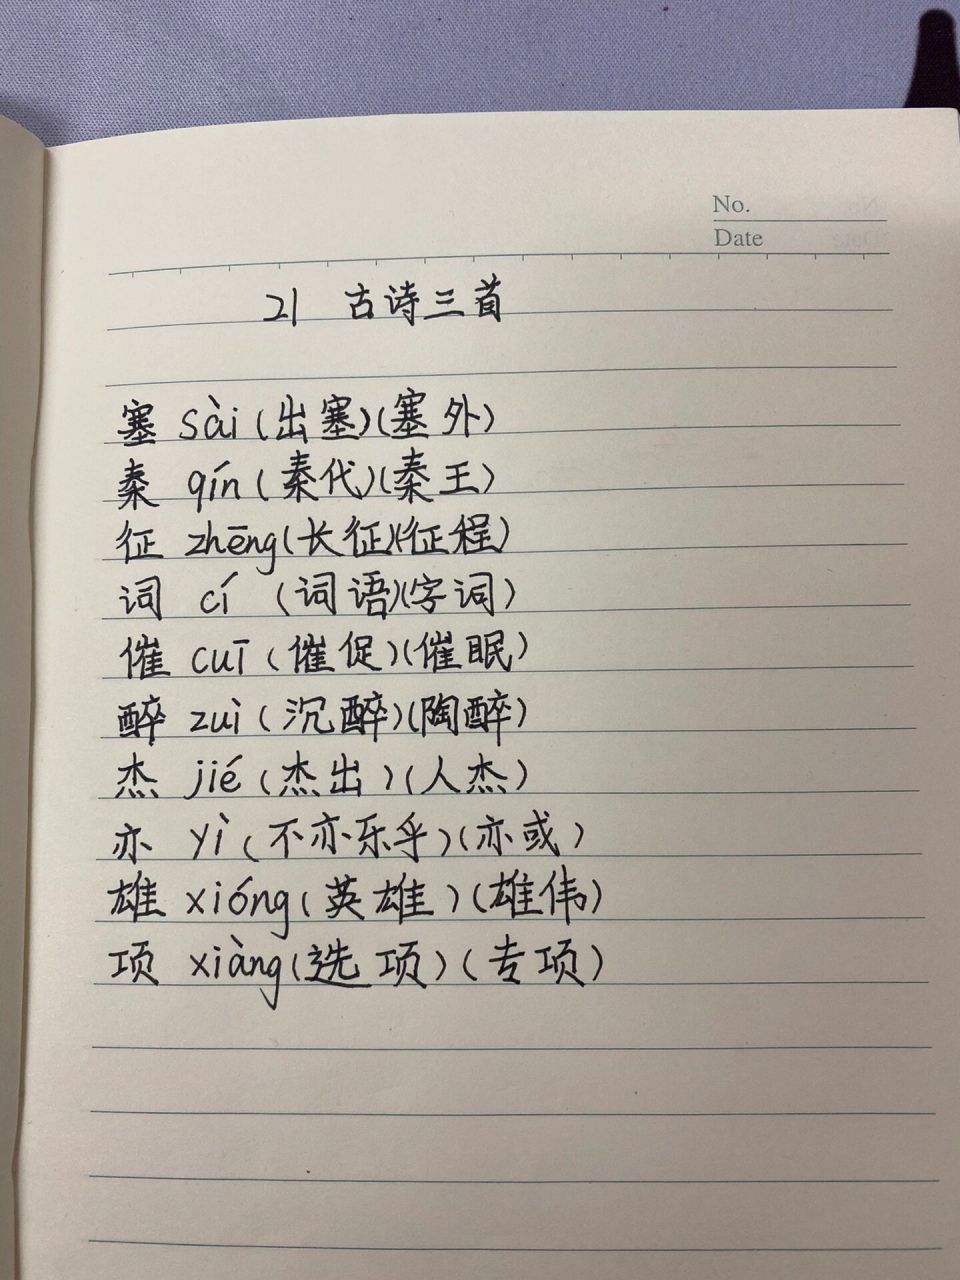 No.
Date
21 古诗三首
塞 sài(出塞)(塞外)
秦 qín(秦代)(秦王)
征 zhēng(长征)(征程)
词 cí (词语)(字词)
催 cuī(催促)(催眠)
醉 zuì(沉醉)(陶醉)
杰 jié(杰出)(人杰)
亦 yì(不亦乐乎)(亦或)
雄 xióng(英雄)(雄伟)
项 xiàng(选项)(专项)